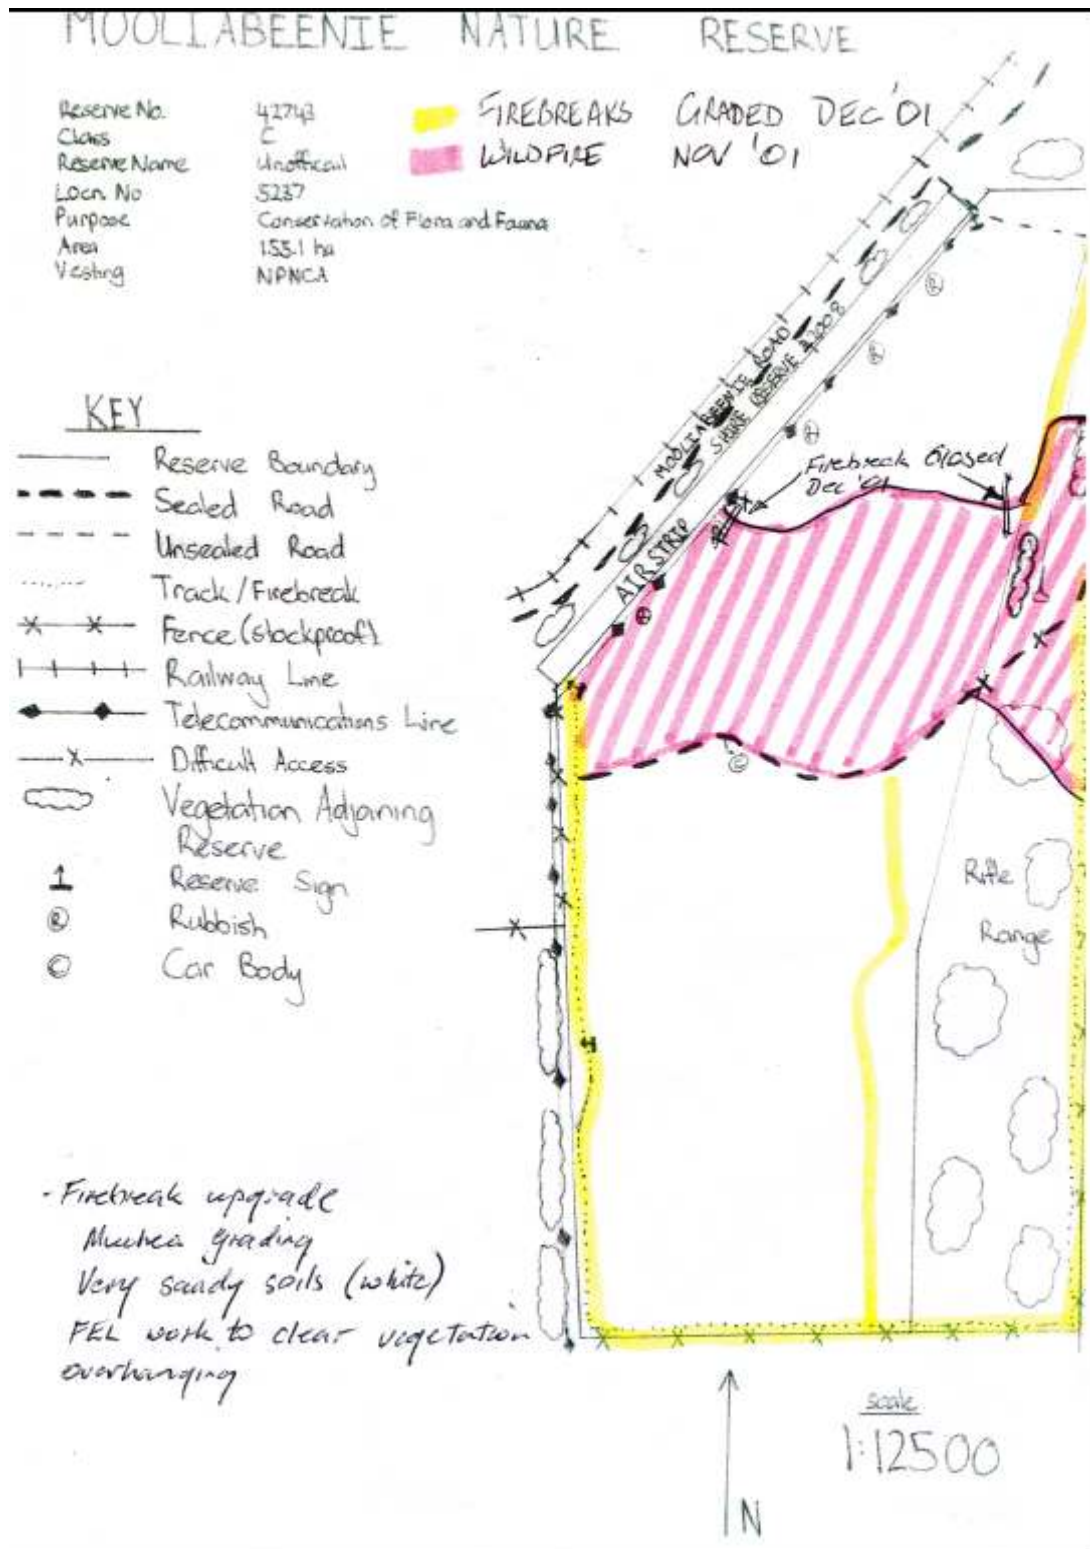 MOOLIABEENIE NATURE RESERVE
Reserve No. 42743
Class C
Reserve Name Unofficial
Locn. No 5237
Purpose Conservation of Flora and Fauna
Area 155.1 ha
Vesting NPNCA
FIREBREAKS GRADED DEC '01
WILDFIRE NOV '01
KEY
Reserve Boundary
Sealed Road
Unsealed Road
Track/Firebreak
Fence (stockproof)
Railway Line
Telecommunications Line
Difficult Access
Vegetation Adjoining
Reserve
Reserve Sign
R Rubbish
C Car Body
MOOLIABEENIE ROAD
SHIRE RESERVE
AIRSTRIP
R
R
R
R
Firebreak Closed
Dec '01
C
Rifle
Range
- Firebreak upgrade
Muchea grading
Very sandy soils (white)
FEL work to clear vegetation
overhanging
N
scale
1:12500